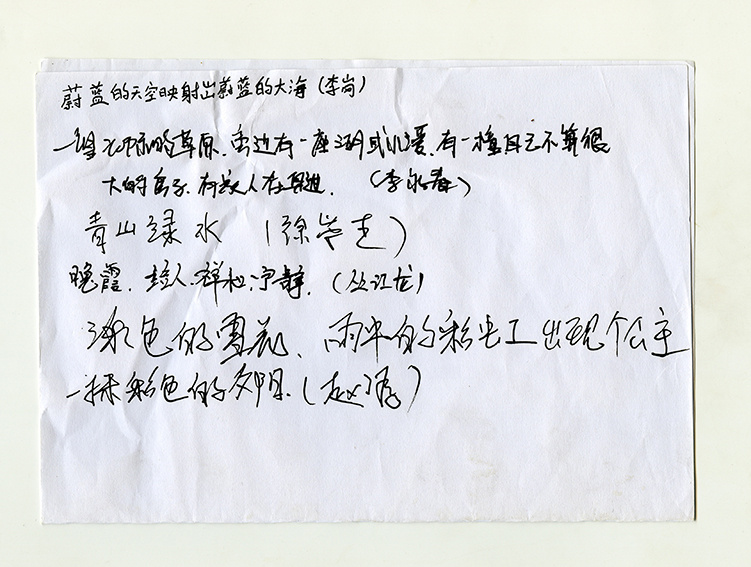 蔚蓝的天空映射出蔚蓝的大海(李岗)
一望无际的草原.旁边有一座湖或小溪,有一幢自己不算很
大的房子.有家人在身边. (李永春)
青山绿水 (徐

晚霞. 恋人.祥和.宁静. (丛江龙)
色的雪花、雨中的彩虹上出现个公主
一抹彩色的夕阳.(赵